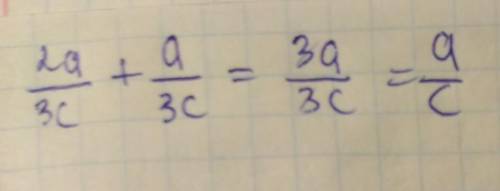 2a/3c + a/3c = 3a/3c = a/c